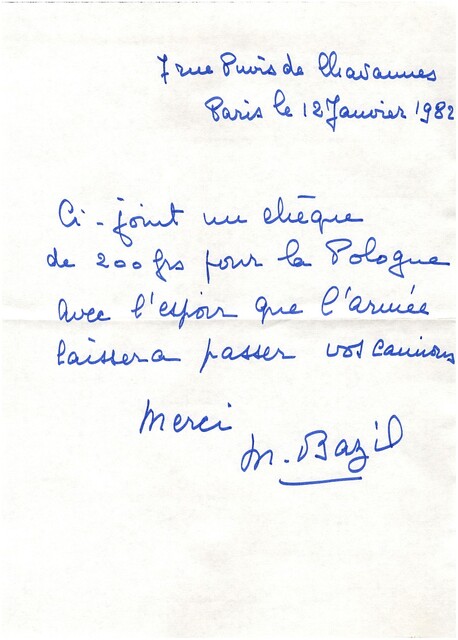 7 rue Puvis de Chavannes
Paris le 12 Janvier 1982
Ci-joint un chèque
de 200 frs pour la Pologne
avec l'espoir que l'armée
laissera passer vos camions
Merci
M. Bazil